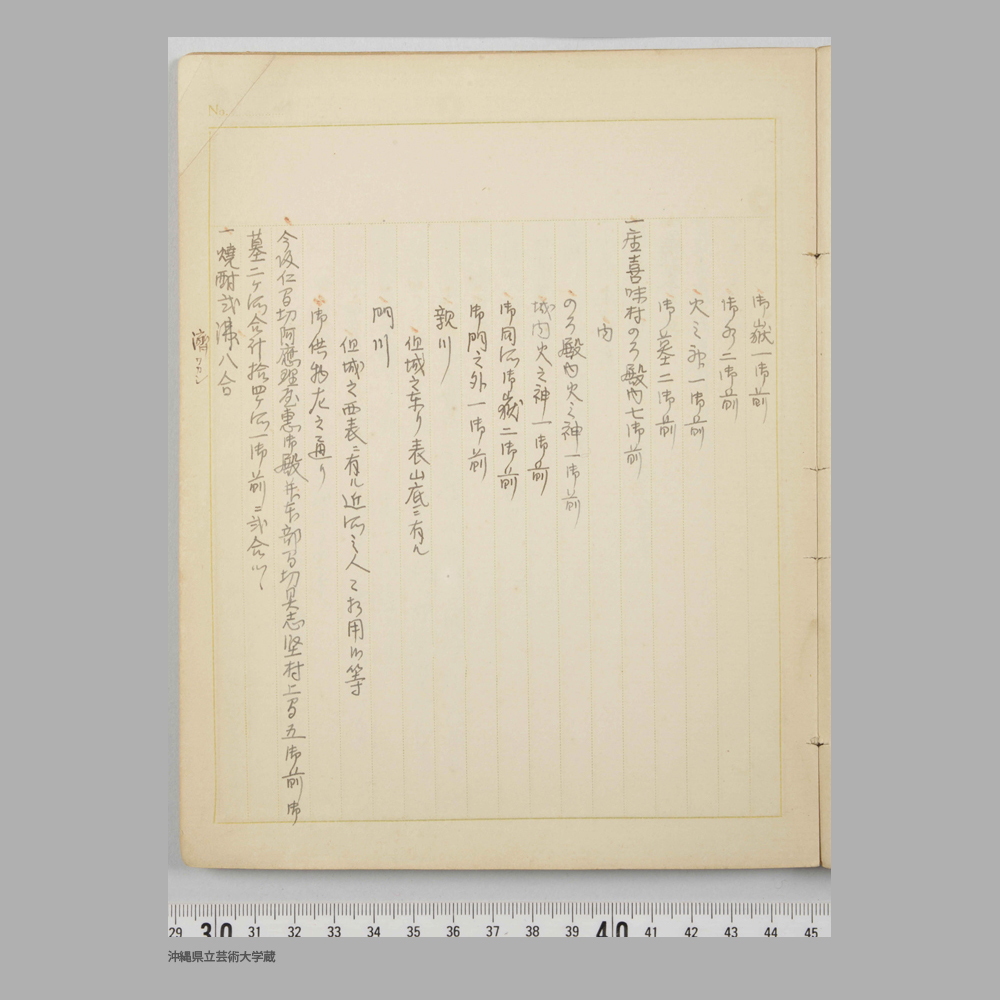 御嶽一御前
御水二御前
火之神一御前
御墓二御前
一座喜味村のろ殿内七御前
内
のろ殿内火之神一御前
城内火之神一御前
御同所御嶽二御前
御門之外一御前
親川
但城之東り表山底ニ有ル
門川
但城之西表ニ有ル近所之人
用
等
御供物左之通り
今帰仁間切阿應理屋恵御殿并本部間切具志堅村上間五御前御
墓二ヶ所合計拾四ヶ所一御前ニ弐合ツヽ
一焼酎弐沸八合
濟
ワカシ
No.
29 30 31 32 33 34 35 36 37 38 39 40 41 42 43 44 45
沖縄県立芸術大学蔵